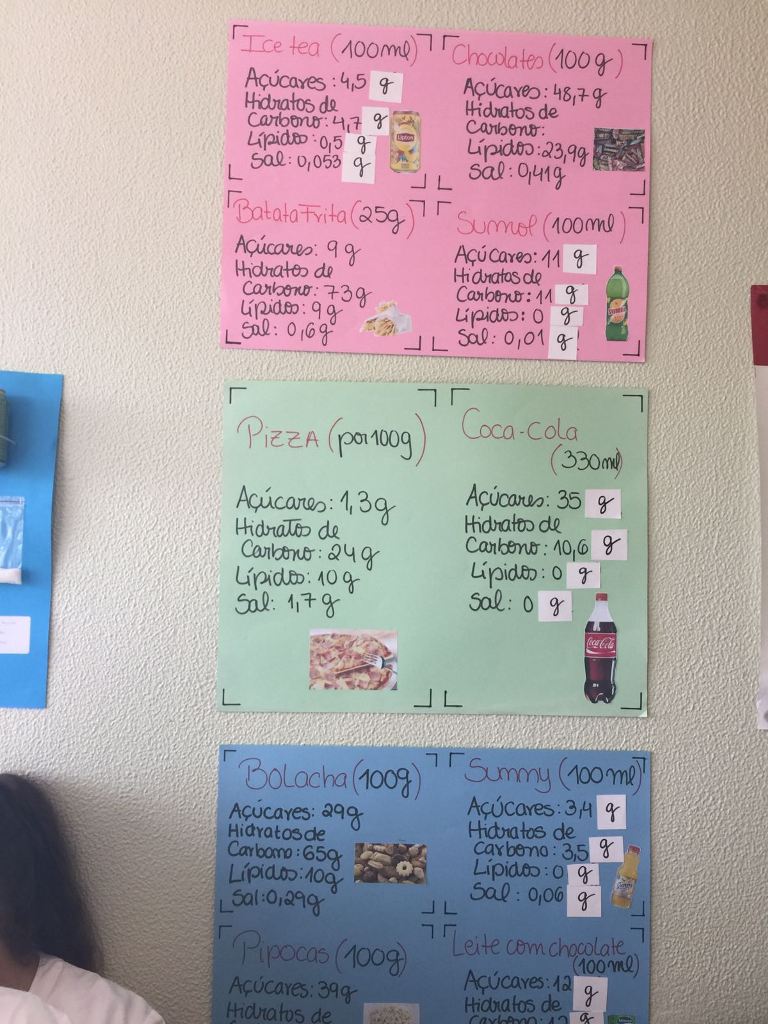 Ice tea (100ml)
Açúcares: 4,5 g
Hidratos de
Carbono: 4,7 g
Lípidos: 0,5 g
Sal: 0,053 g
Lipton
Chocolates (100g)
Açúcares: 48,7g
Hidratos de
Carbono:
Lípidos: 23,9g
Sal: 0,41g
Batata Frita (25g)
Açúcares: 9g
Hidratos de
Carbono: 73g
Lípidos: 9g
Sal: 0,6g
Sumol (100ml)
Açúcares: 11 g
Hidratos de
Carbono: 11 g
Lípidos: 0 g
Sal: 0,01 g
Pizza (por 100g)
Açúcares: 1,3g
Hidratos de
Carbono: 24g
Lípidos: 10g
Sal: 1,7g
Coca-cola
(330ml)
Açúcares: 35 g
Hidratos de
Carbono: 10,6 g
Lípidos: 0 g
Sal: 0 g
Coca-Cola
Bolacha (100g)
Açúcares: 29g
Hidratos de
Carbono: 65g
Lípidos: 10g
Sal: 0,29g
Summy (100ml)
Açúcares: 3,4 g
Hidratos de
Carbono: 3,5 g
Lípidos: 0 g
Sal: 0,06 g
Pipocas (100g)
Açúcares: 39g
Hidratos de
Leite com chocolate
(100ml)
Açúcares: 12 g
Hidratos de
Carbono: 12 g